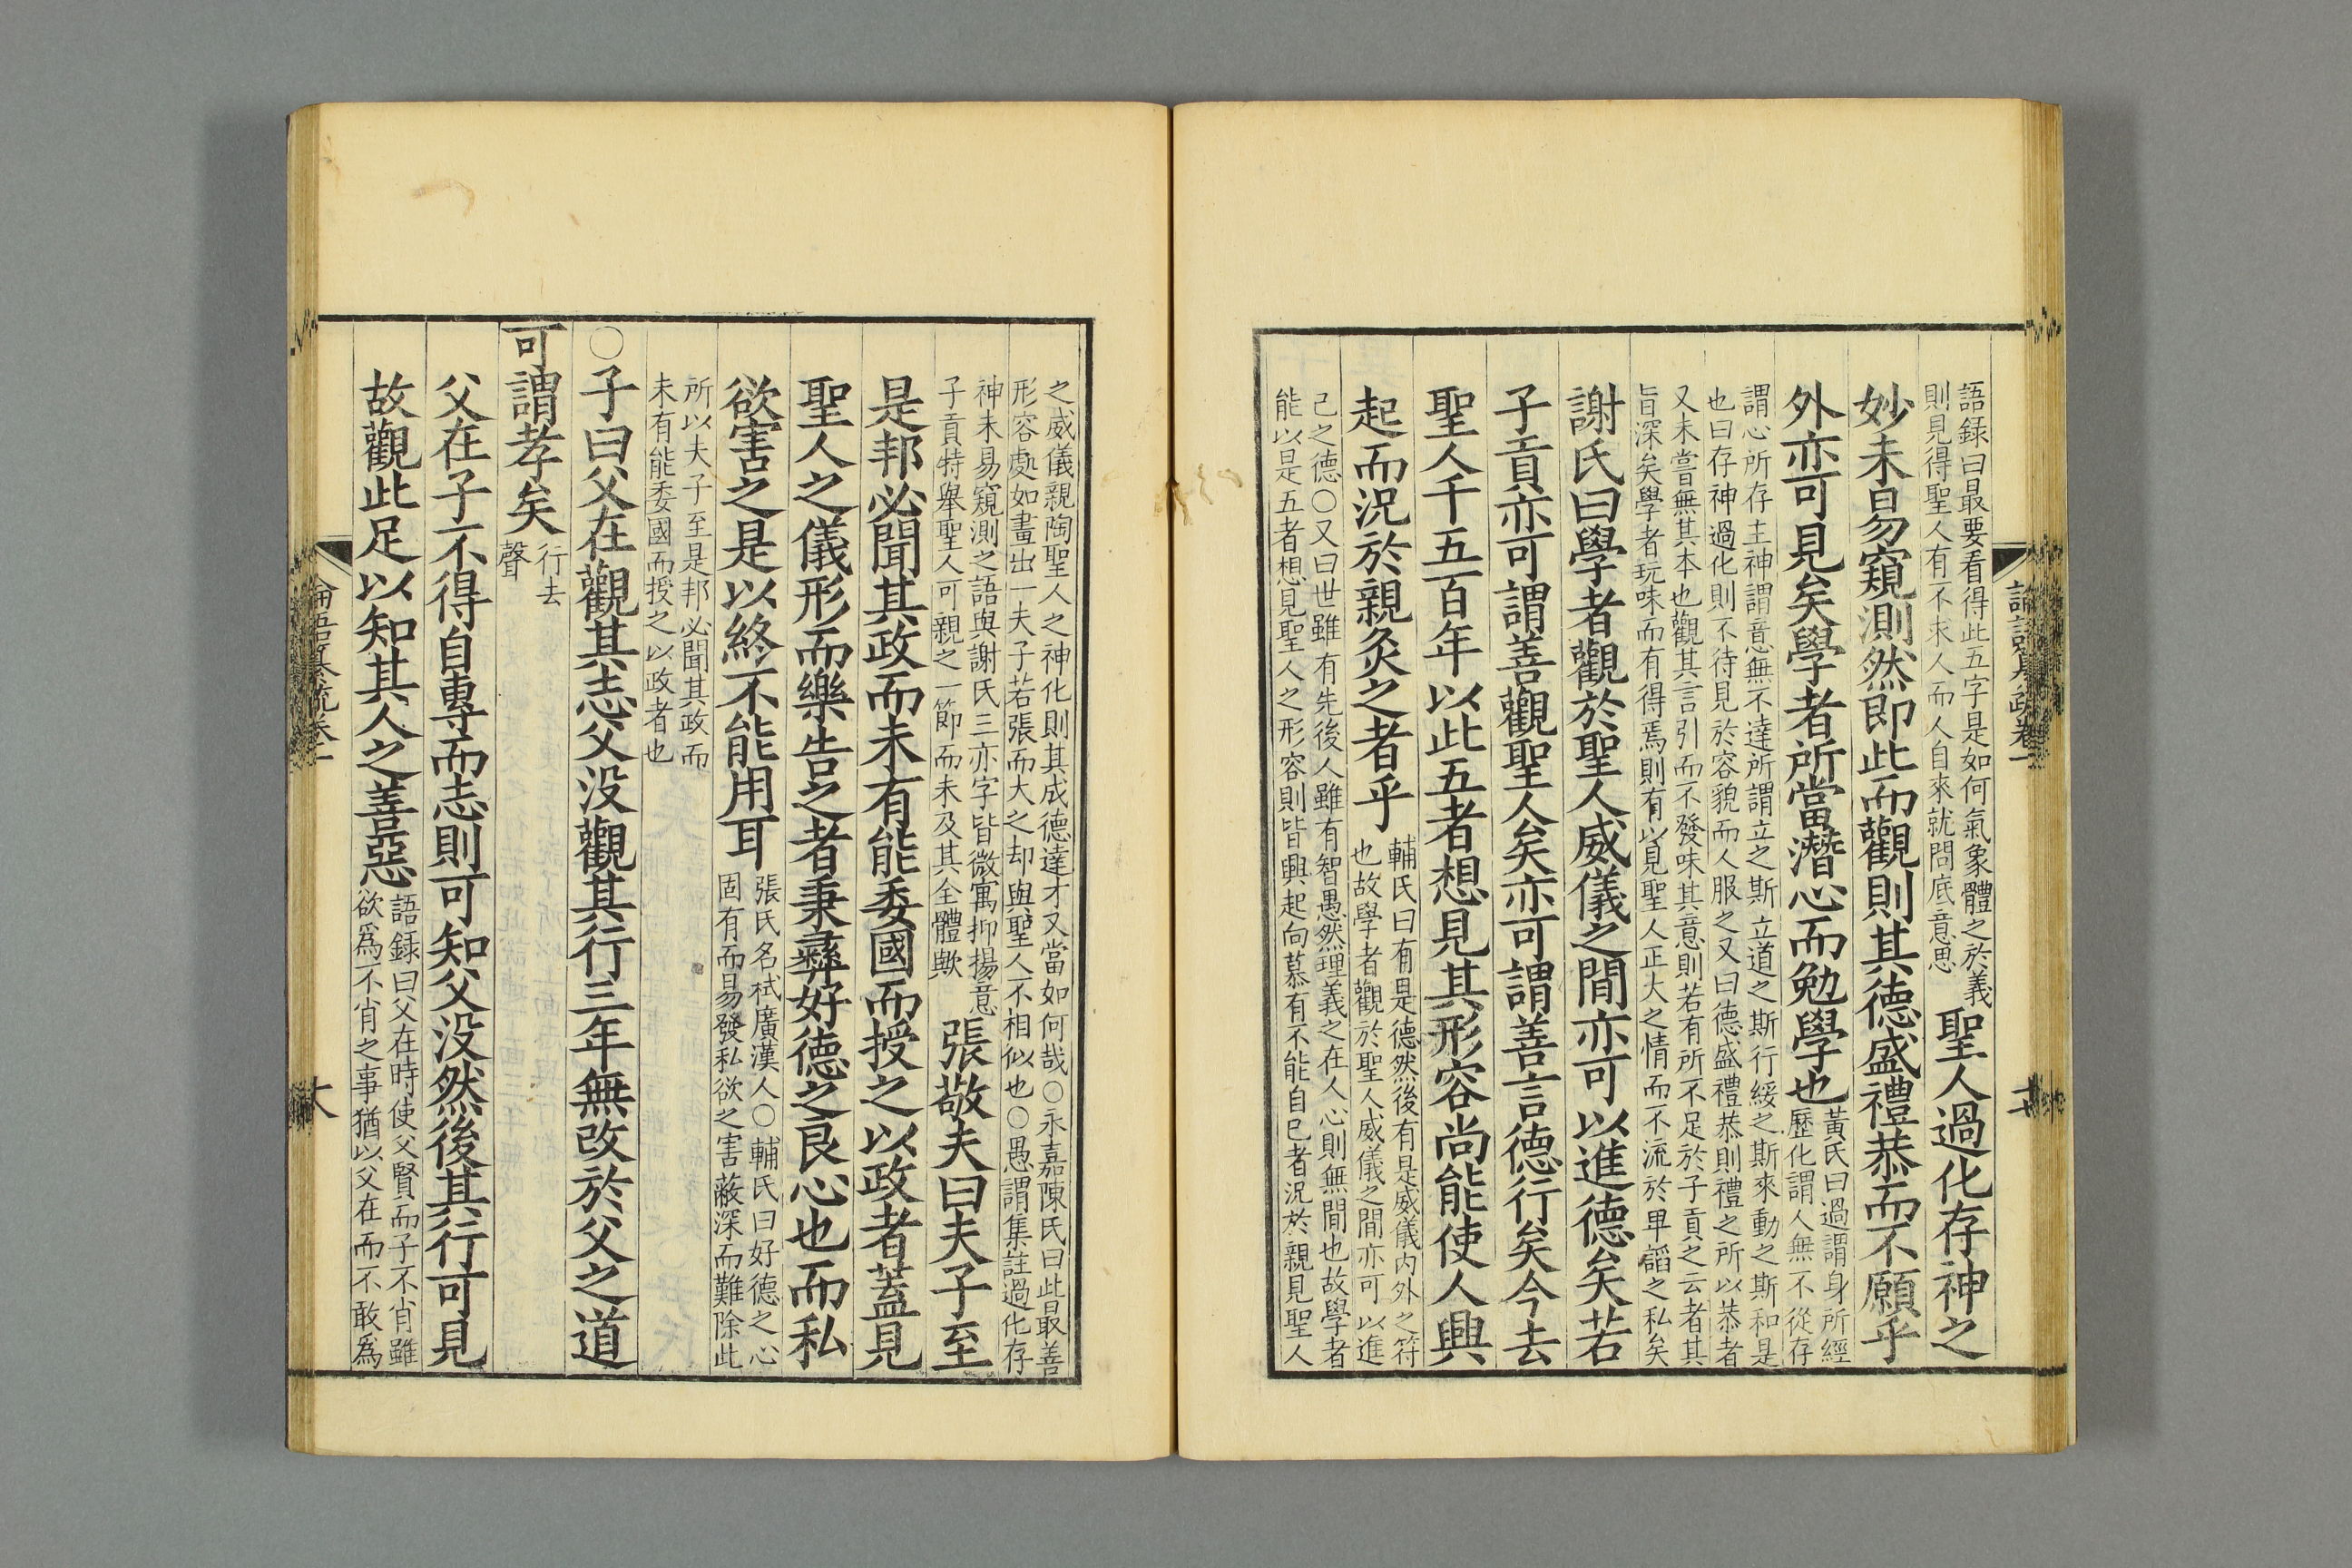 語録曰最要看得此五字是如何氣象體之於義
則見得聖人有不求人而人自來就問底意思
聖人過化存神之
妙未易窺測然即此而觀則其德盛禮恭而不願乎
外亦可見矣學者所當潛心而勉學也
黃氏曰過謂身所經
歷化謂人無不從存
謂心所存主神謂意無不達所謂立之斯立道之斯行綏之斯來動之斯和是
也曰存神過化則不待見於容貌而人服之又曰德盛禮恭則禮之所以恭者
又未嘗無其本也觀其言引而不發味其意則若有所不足於子貢之云者其
旨深矣學者玩味而有得焉則有以見聖人正大之情而不流於卑謟之私矣
謝氏曰學者觀於聖人威儀之間亦可以進德矣若
子貢亦可謂善觀聖人矣亦可謂善言德行矣今去
聖人千五百年以此五者想見其形容尚能使人興
起而況於親炙之者乎
輔氏曰有是德然後有是威儀内外之符
也故學者觀於聖人威儀之間亦可以進
己之德○又曰世雖有先後人雖有智愚然理義之在人心則無間也故學者
能以是五者想見聖人之形容則皆興起向慕有不能自已者況於親見聖人
之威儀親陶聖人之神化則其成德達才又當如何哉○永嘉陳氏曰此最善
形容處如畫出一夫子若張而大之却與聖人不相似也○愚謂集註過化存
神未易窺測之語與謝氏三亦字皆微寓抑揚意
子貢特舉聖人可親之一節而未及其全體歟
張敬夫曰夫子至
是邦必聞其政而未有能委國而授之以政者蓋見
聖人之儀形而樂告之者秉彝好德之良心也而私
欲害之是以終不能用耳
張氏名栻廣漢人○輔氏曰好德之心
固有而易發私欲之害蔽深而難除此
所以夫子至是邦必聞其政而
未有能委國而授之以政者也
○子曰父在觀其志父沒觀其行三年無改於父之道
可謂孝矣
行去
聲
父在子不得自專而志則可知父沒然後其行可見
故觀此足以知其人之善惡
語録曰父在時使父賢而子不肖雖
欲爲不肖之事猶以父在而不敢爲